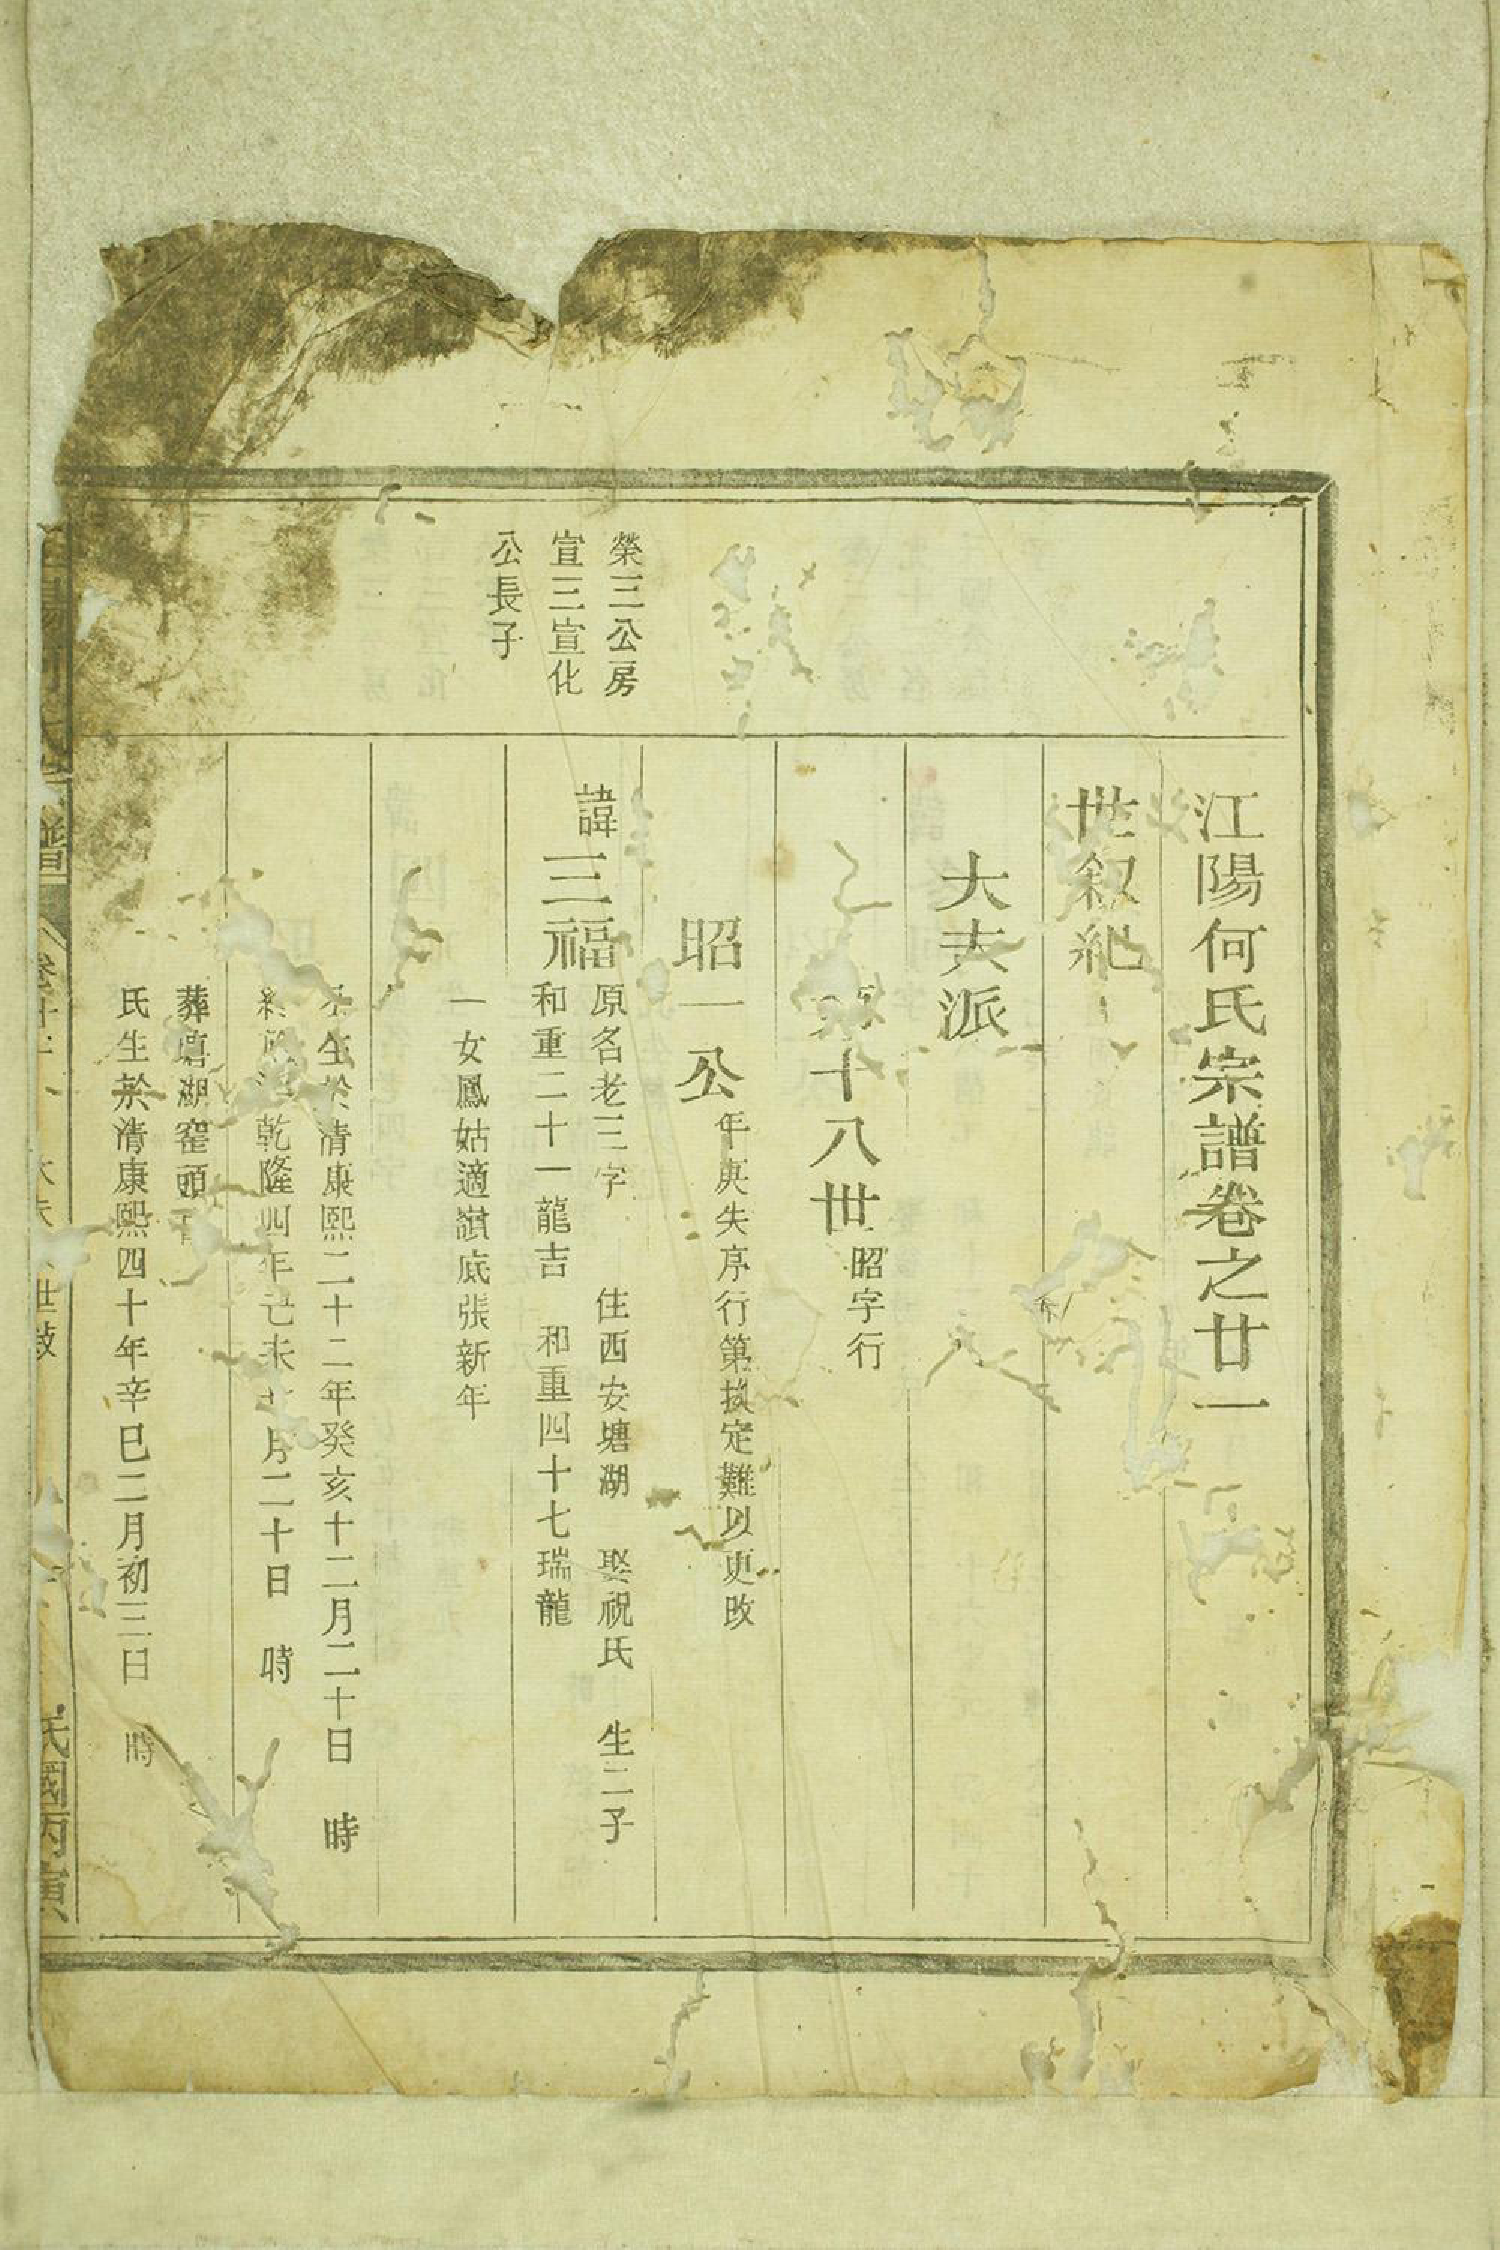 江陽何氏宗譜卷之廿一
世叙紀
大夫派
第十八世昭字行
昭一公年與失序行第攙定難以更改
榮三公房
宣三宣化
公長子
諱三福
原名老三字 住西安塘湖 娶祝氏 生二子
和重二十一龍吉 和重四十七瑞龍
一女鳳姑適嶺底張新年
公生於清康熙二十二年癸亥十二月二十日 時
終於 乾隆四年己未 月二十日 時
葬塘湖窰頭
氏生於清康熙四十年辛巳二月初三日 時
民國丙寅